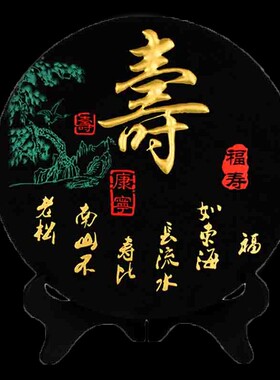 壽
福寿
康寧
壽
福
如東海
長流水
壽比
南山不
老松